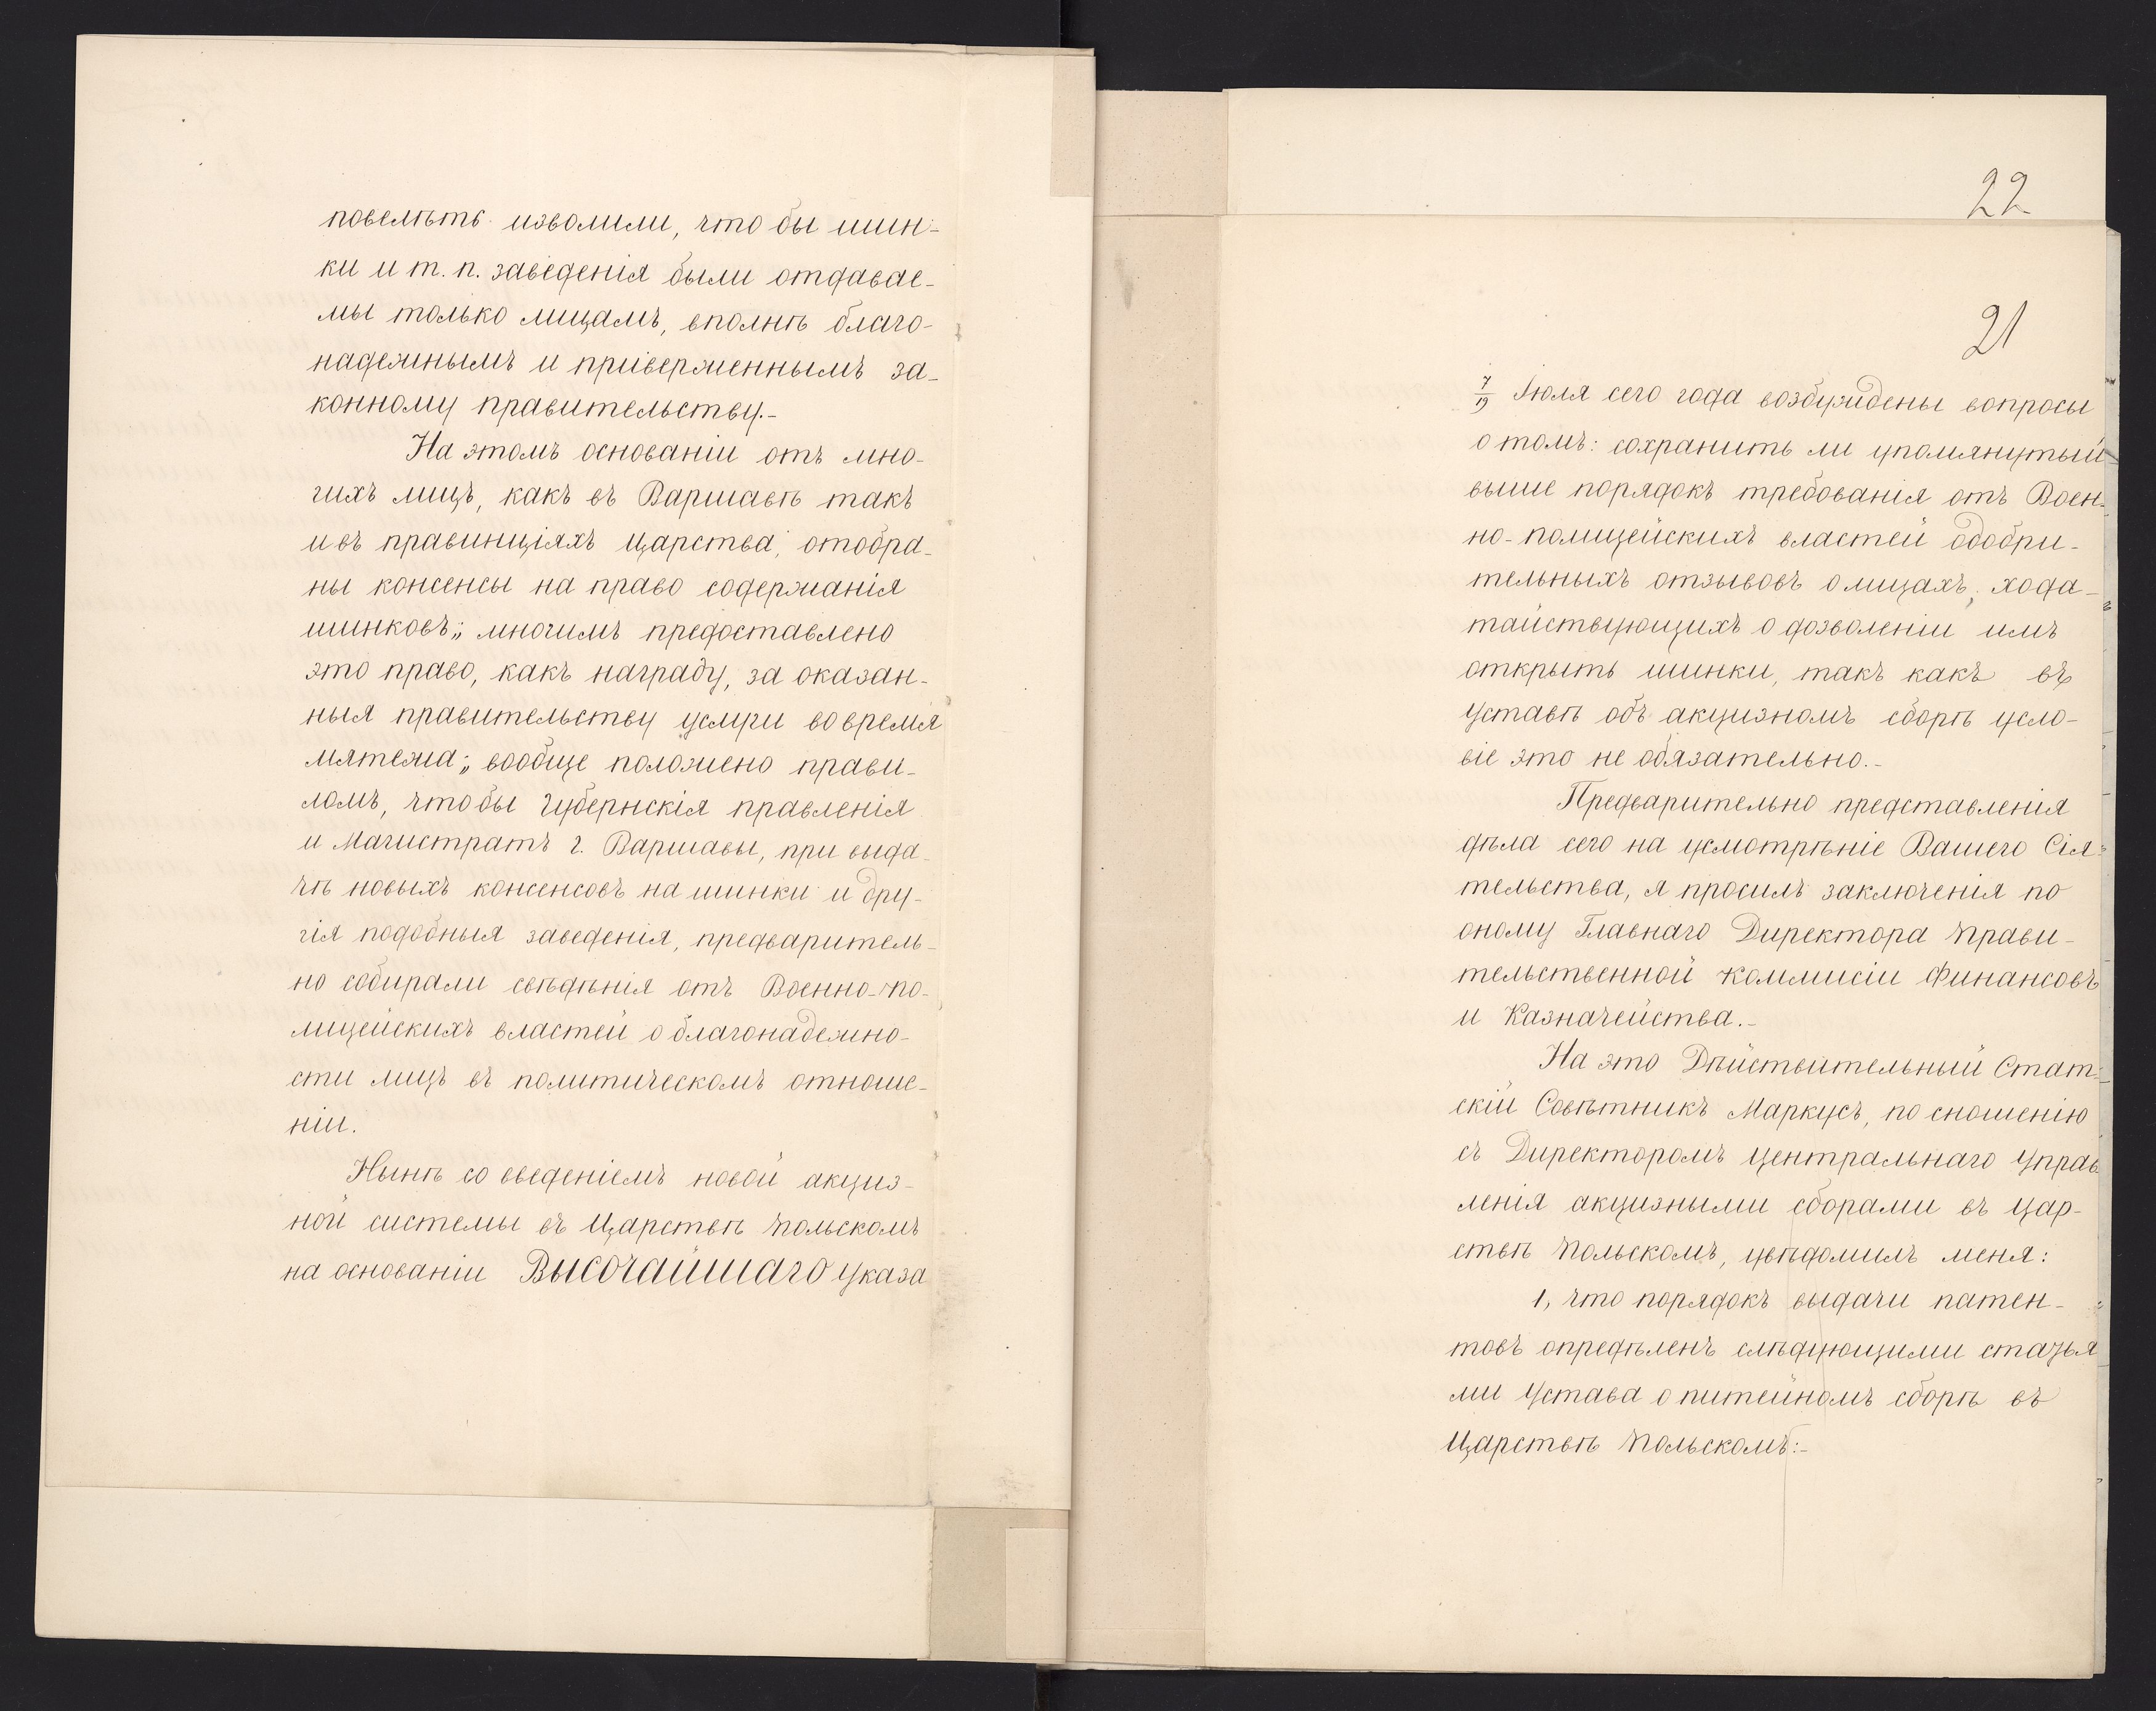 повелѣть изволили, что бы шин-
ки и т. п. заведенія были отдавае-
мы только лицамъ, вполнѣ благо-
надежнымъ и приверженнымъ за-
конному правительству.-
На этомъ основаніи отъ мно-
гихъ лицъ, какъ въ Варшавѣ такъ
и въ правинціяхъ Царства, отобра-
ны консенсы на право содержанія
шинковъ; многимъ предоставлено
это право, какъ награду, за оказан-
ныя правительству услуги во время
мятежа; вообще положено прави-
ломъ, чтобы Губернскія правленія
и Магистратъ г. Варшавы, при выда-
чѣ новыхъ консенсовъ на шинки и дру-
гія подобныя заведенія, предваритель-
но собирали свѣдѣнія отъ Военно-по-
лицейскихъ властей о благонадежно-
сти лицъ въ политическомъ отноше-
ніи.
Нынѣ со введеніемъ новой акциз-
ной системы въ Царствѣ Польскомъ
на основаніи Высочайшаго Указа
22
21
7/9 Іюля сего года возбуждены вопросы
о томъ: сохранить ли упомянутый
выше порядокъ требованія отъ Воен-
но-полицейскихъ властей одобри-
тельныхъ отзывовъ о лицахъ, хода-
тайствующихъ о дозволеніи имъ
открыть шинки, такъ какъ въ
Уставѣ объ акцизномъ сборѣ усло-
віе это не обязательно.-
Предварительно представленія
дѣла сего на усмотрѣніе Вашего Сія-
тельства, я просилъ заключенія по
оному Главнаго Директора Прави-
тельственной Коммисіи Финансовъ
и Казначейства.-
На это Дѣйствительный Стат-
скій Совѣтникъ Маркусъ, по сношенію
съ Директоромъ Центральнаго Управ
ленія акцизными сборами въ Цар-
ствѣ Польскомъ, увѣдомилъ меня:
1, что порядокъ выдачи патен-
товъ опредѣленъ слѣдующими статья
ми Устава о питейномъ сборѣ въ
Царствѣ Польскомъ:-